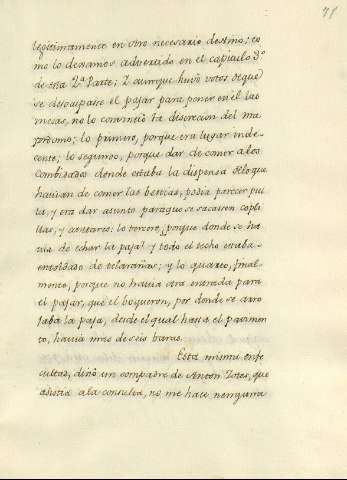 71
legitimamente en otro necesario destino: co
mo lo dexamos advertido en el capitulo 3.º
de esta 2.ª Parte; y aunque huvo votos de que
se desocupase el pajar para poner en el las
mesas, no lo consintió la discrecion del ma
yordomo; lo primero, porque era lugar inde-
cente; lo segundo, porque dar de comer a los
combidados donde estaba la dispensa de lo que
havian de comer las bestias, podia parecer pu
lla, y era dar asunto para que se sacasen copli
llas, y cantares: lo tercero, porque donde se ha
via de echar la paja? y todo el techo estaba
entoldado de telarañas; y lo quarto, final-
mente, porque no havia otra entrada para
el pajar, que el boqueron, por donde se arro
jaba la paja, desde el qual hasta el pavimen
to, havia mas de seis baras.
Esta misma dificultad
cultad, dixo un compadre de Anton Zotes, que
asistia a la consulta, no me hace ninguna